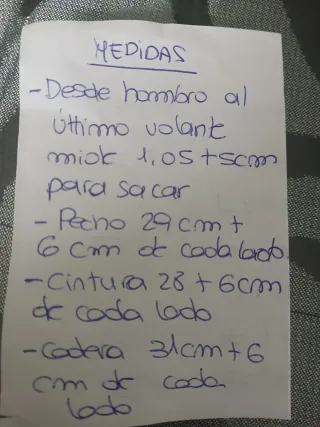 MEDIDAS
- Desde hombro al
últtimo volant
miok 1,05 + 5cm
para sacar
- Pecho 29 cm +
6 cm de cada lado
- Cintura 28 + 6cm
de cada lado
- Cadera 31cm + 6
cm de cada
lado